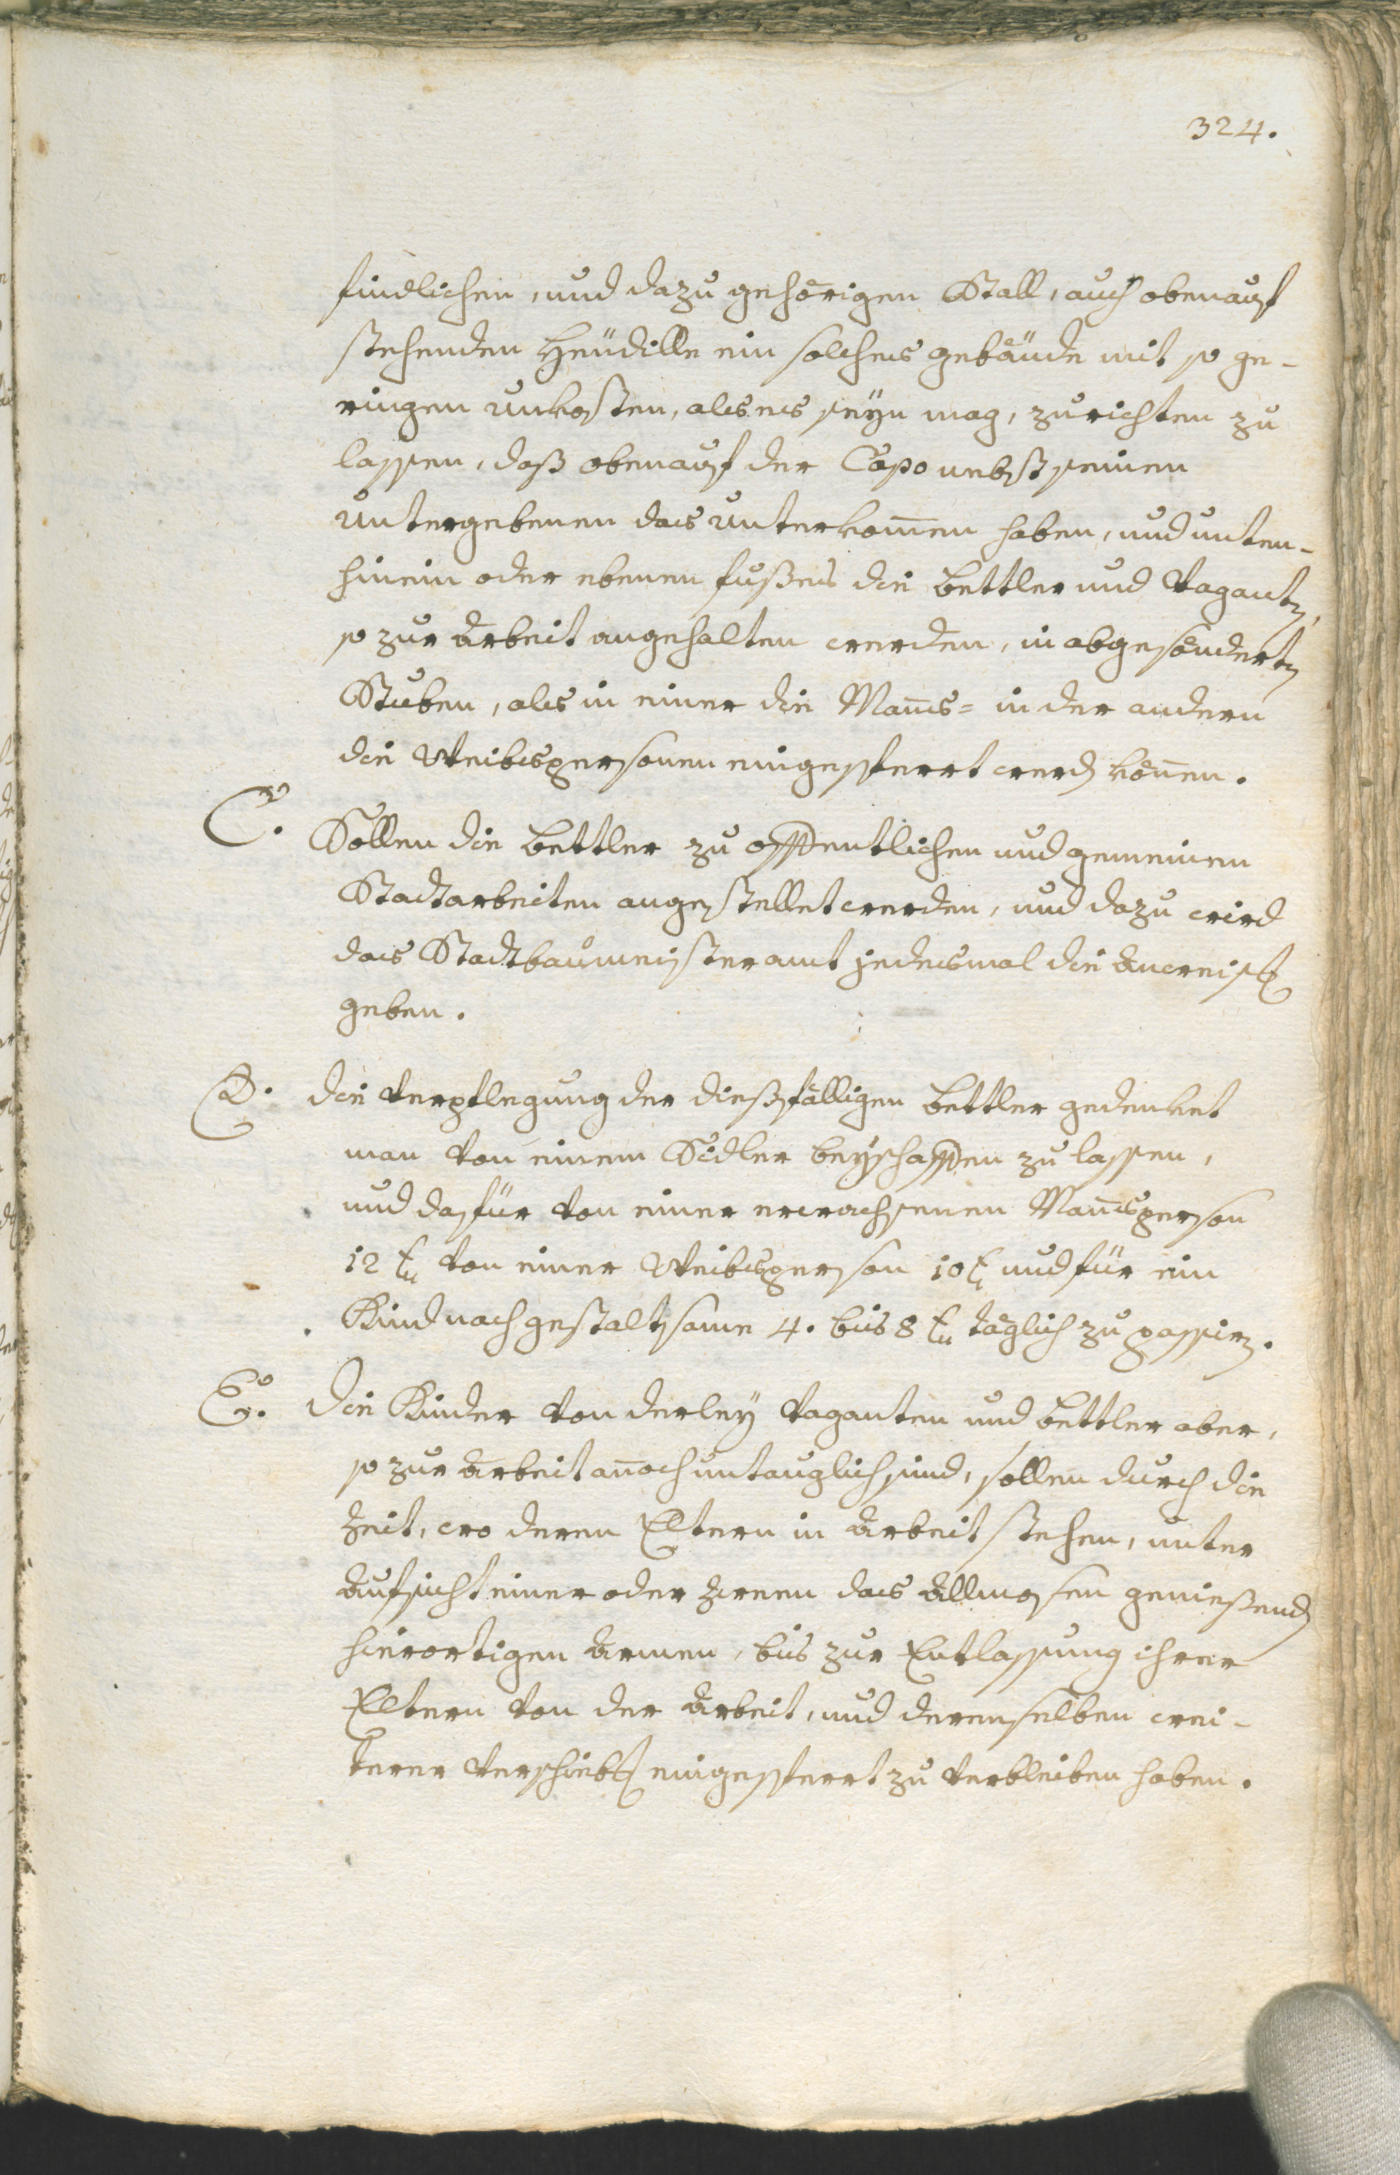 324.
findlichen, und dazu gehörigen Stall, auch obenauf
stehenden Heüdille ein solches gebäude mit so ge-
ringen Unkosten, als es seÿn mag, zurichten zu
lassen, daß obenauf der Capo nebst seinen
Untergebenen das Unterkom̄en haben, und unten-
hinein oder ebenen fußes die Bettler und Vaganten,
so zur Arbeit angehalten werden, in abgesönderten
Stuben, als in einer die Man̄s= in der andern
die Weibspersonen eingesperrt werden kön̄en.
C. Sollen die Bettler zu offentlichen und gemeinen
Stadtarbeiten angestellet werden, und dazu wird
das Stadtbaumeisteramt jedesmal die Anweisung
geben.
D. die Verpflegung der dießfälligen Bettler gedenket
man von einem Södler beÿschaffen zu lassen,
und dafür von einer erwachsenen Man̄sperson
12 kr von einer Weibsperson 10 kr und für ein
Kind nach gestaltsame 4. bis 8 kr täglich zu passiren.
E. die Kinder von derleÿ Vaganten und Bettler aber,
so zur Arbeit an̄och untauglich sind, sollen durch die
Zeit, wo deren Eltern in Arbeit stehen, unter
Aufsicht einer oder zween das Allmosen genießenden
hierortigen Armen, bis zur Entlassung ihrer
Eltern von der Arbeit, und derenselben wei-
terer Verschiebung eingesperrt zu verbleiben haben.